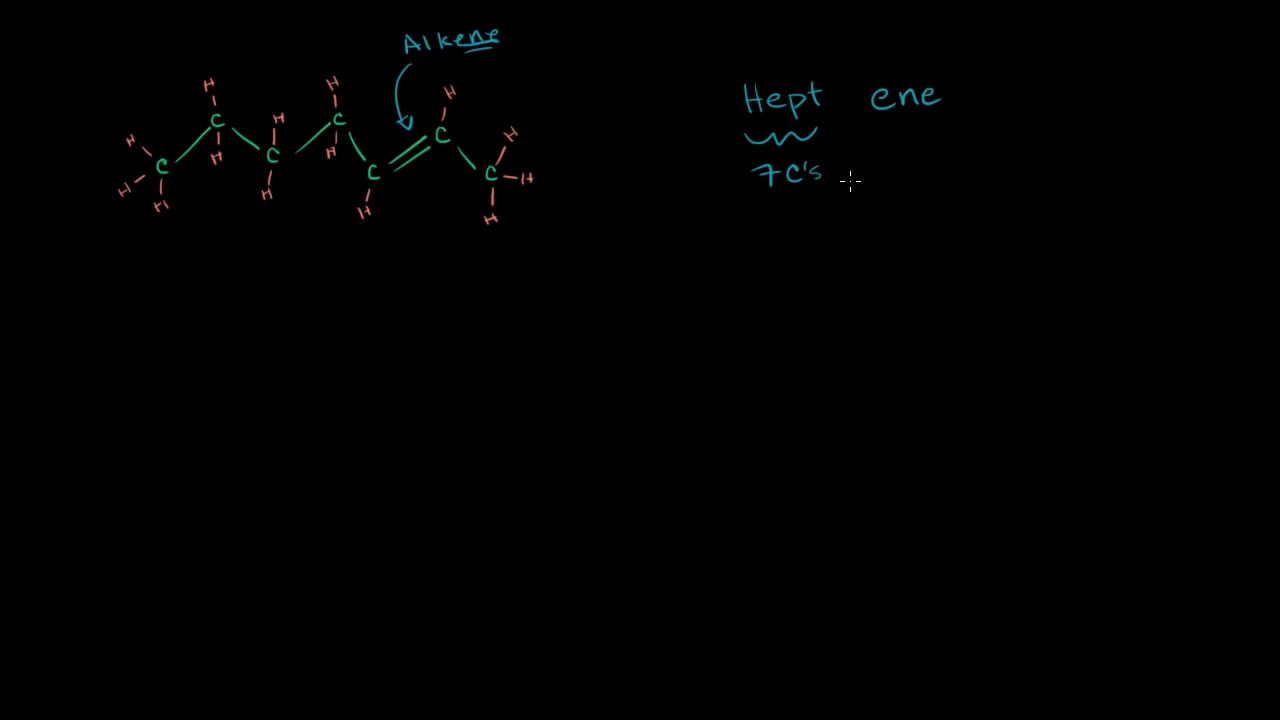 Alkene
H H H
H C C H
H C H C
H C C H
H H H C H
H H H
Hept ene
7 C's